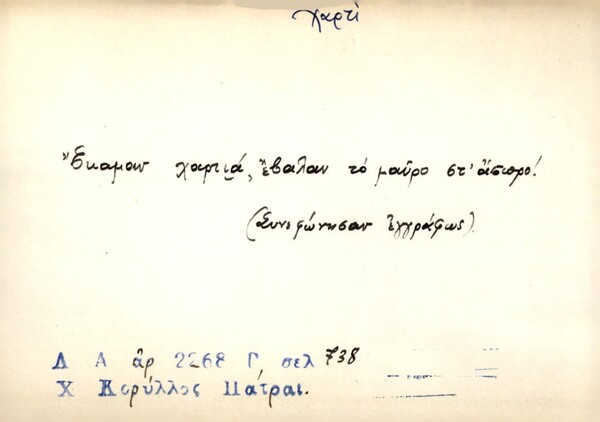 χαρτί
Ἔκαμαν χαρτιά, ἔβαλαν τό μαῦρο στ' ἄσπρο!
(Συνεφώνησαν ἐγγράφως).
Λ Α ἀρ 2268 Γ σελ 738
Χ Κορύλλος Πάτραι.